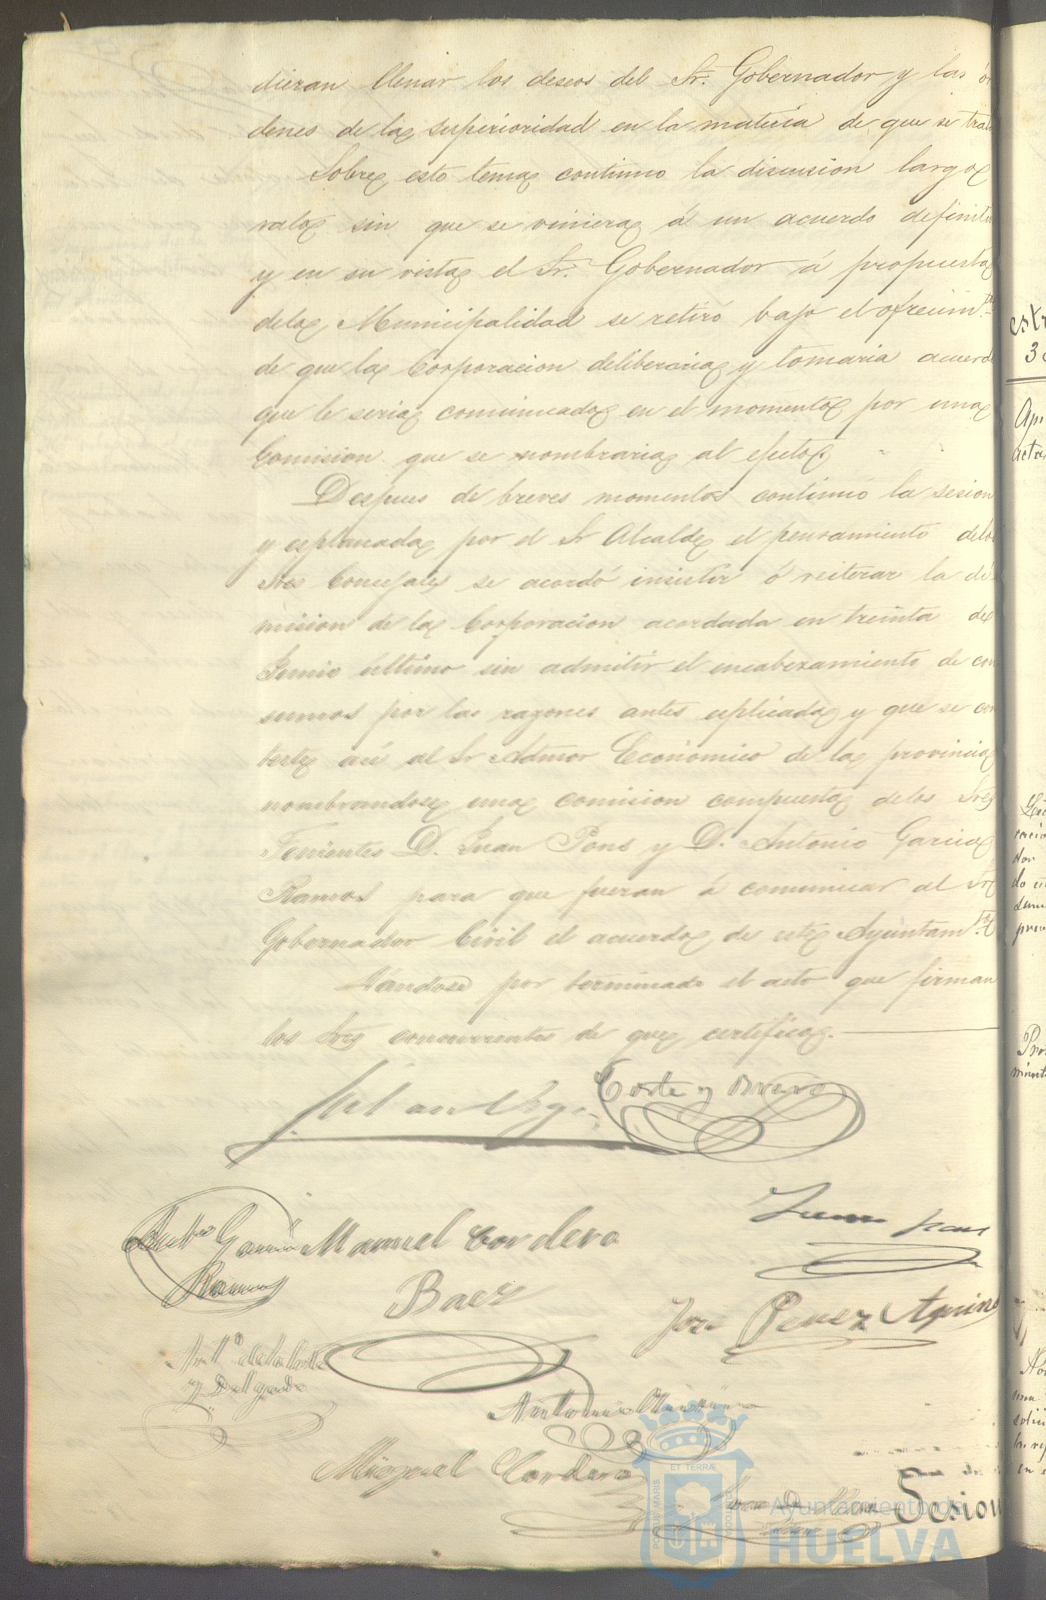 dieran llenar los deseos del Sr. Gobernador y las ór
denes de la superioridad en la materia de que se trata
Sobre este tema continuo la discusion largo
rato sin que se viniera á un acuerdo definitivo
y en su vista el Sr. Gobernador á propuesta
dela Municipalidad se retiró bajo el ofrecim.to
de que la Corporacion deliberaria y tomaria acuerdo
que le seria comunicado en el momento por una
Comision que se nombraria al efecto.
Despues de breves momentos continuó la sesion
y esplanada por el Sr Alcalde el pensamiento delos
Sres Concejales se acordó insistir ó reiterar la di
mision de la Corporacion acordada en treinta de
Junio último sin admitir el encabezamiento de con
sumos por las razones antes esplicadas y que se con
teste así al Sr Admor Económico de la provincia
nombrandose una comision compuesta delos Sres
Tenientes D. Juan Pons y D. Antonio Garcia
Ramos para que fueran á comunicar al Sr
Gobernador Civil el acuerdo de este Ayuntam.to
Dandose por terminado el acto que firman
los Sres concurrentes de que certifico.
Corte y
Anto Garcia Manuel Cordero Juan Pons
Ramos Baez
Jose Perez
de la Corte
y Delgado
Antonio
Miguel Cordero
Sesion
PORTUS MARIS ET TERRÆ CUSTODIA
Ayuntamiento de
HUELVA